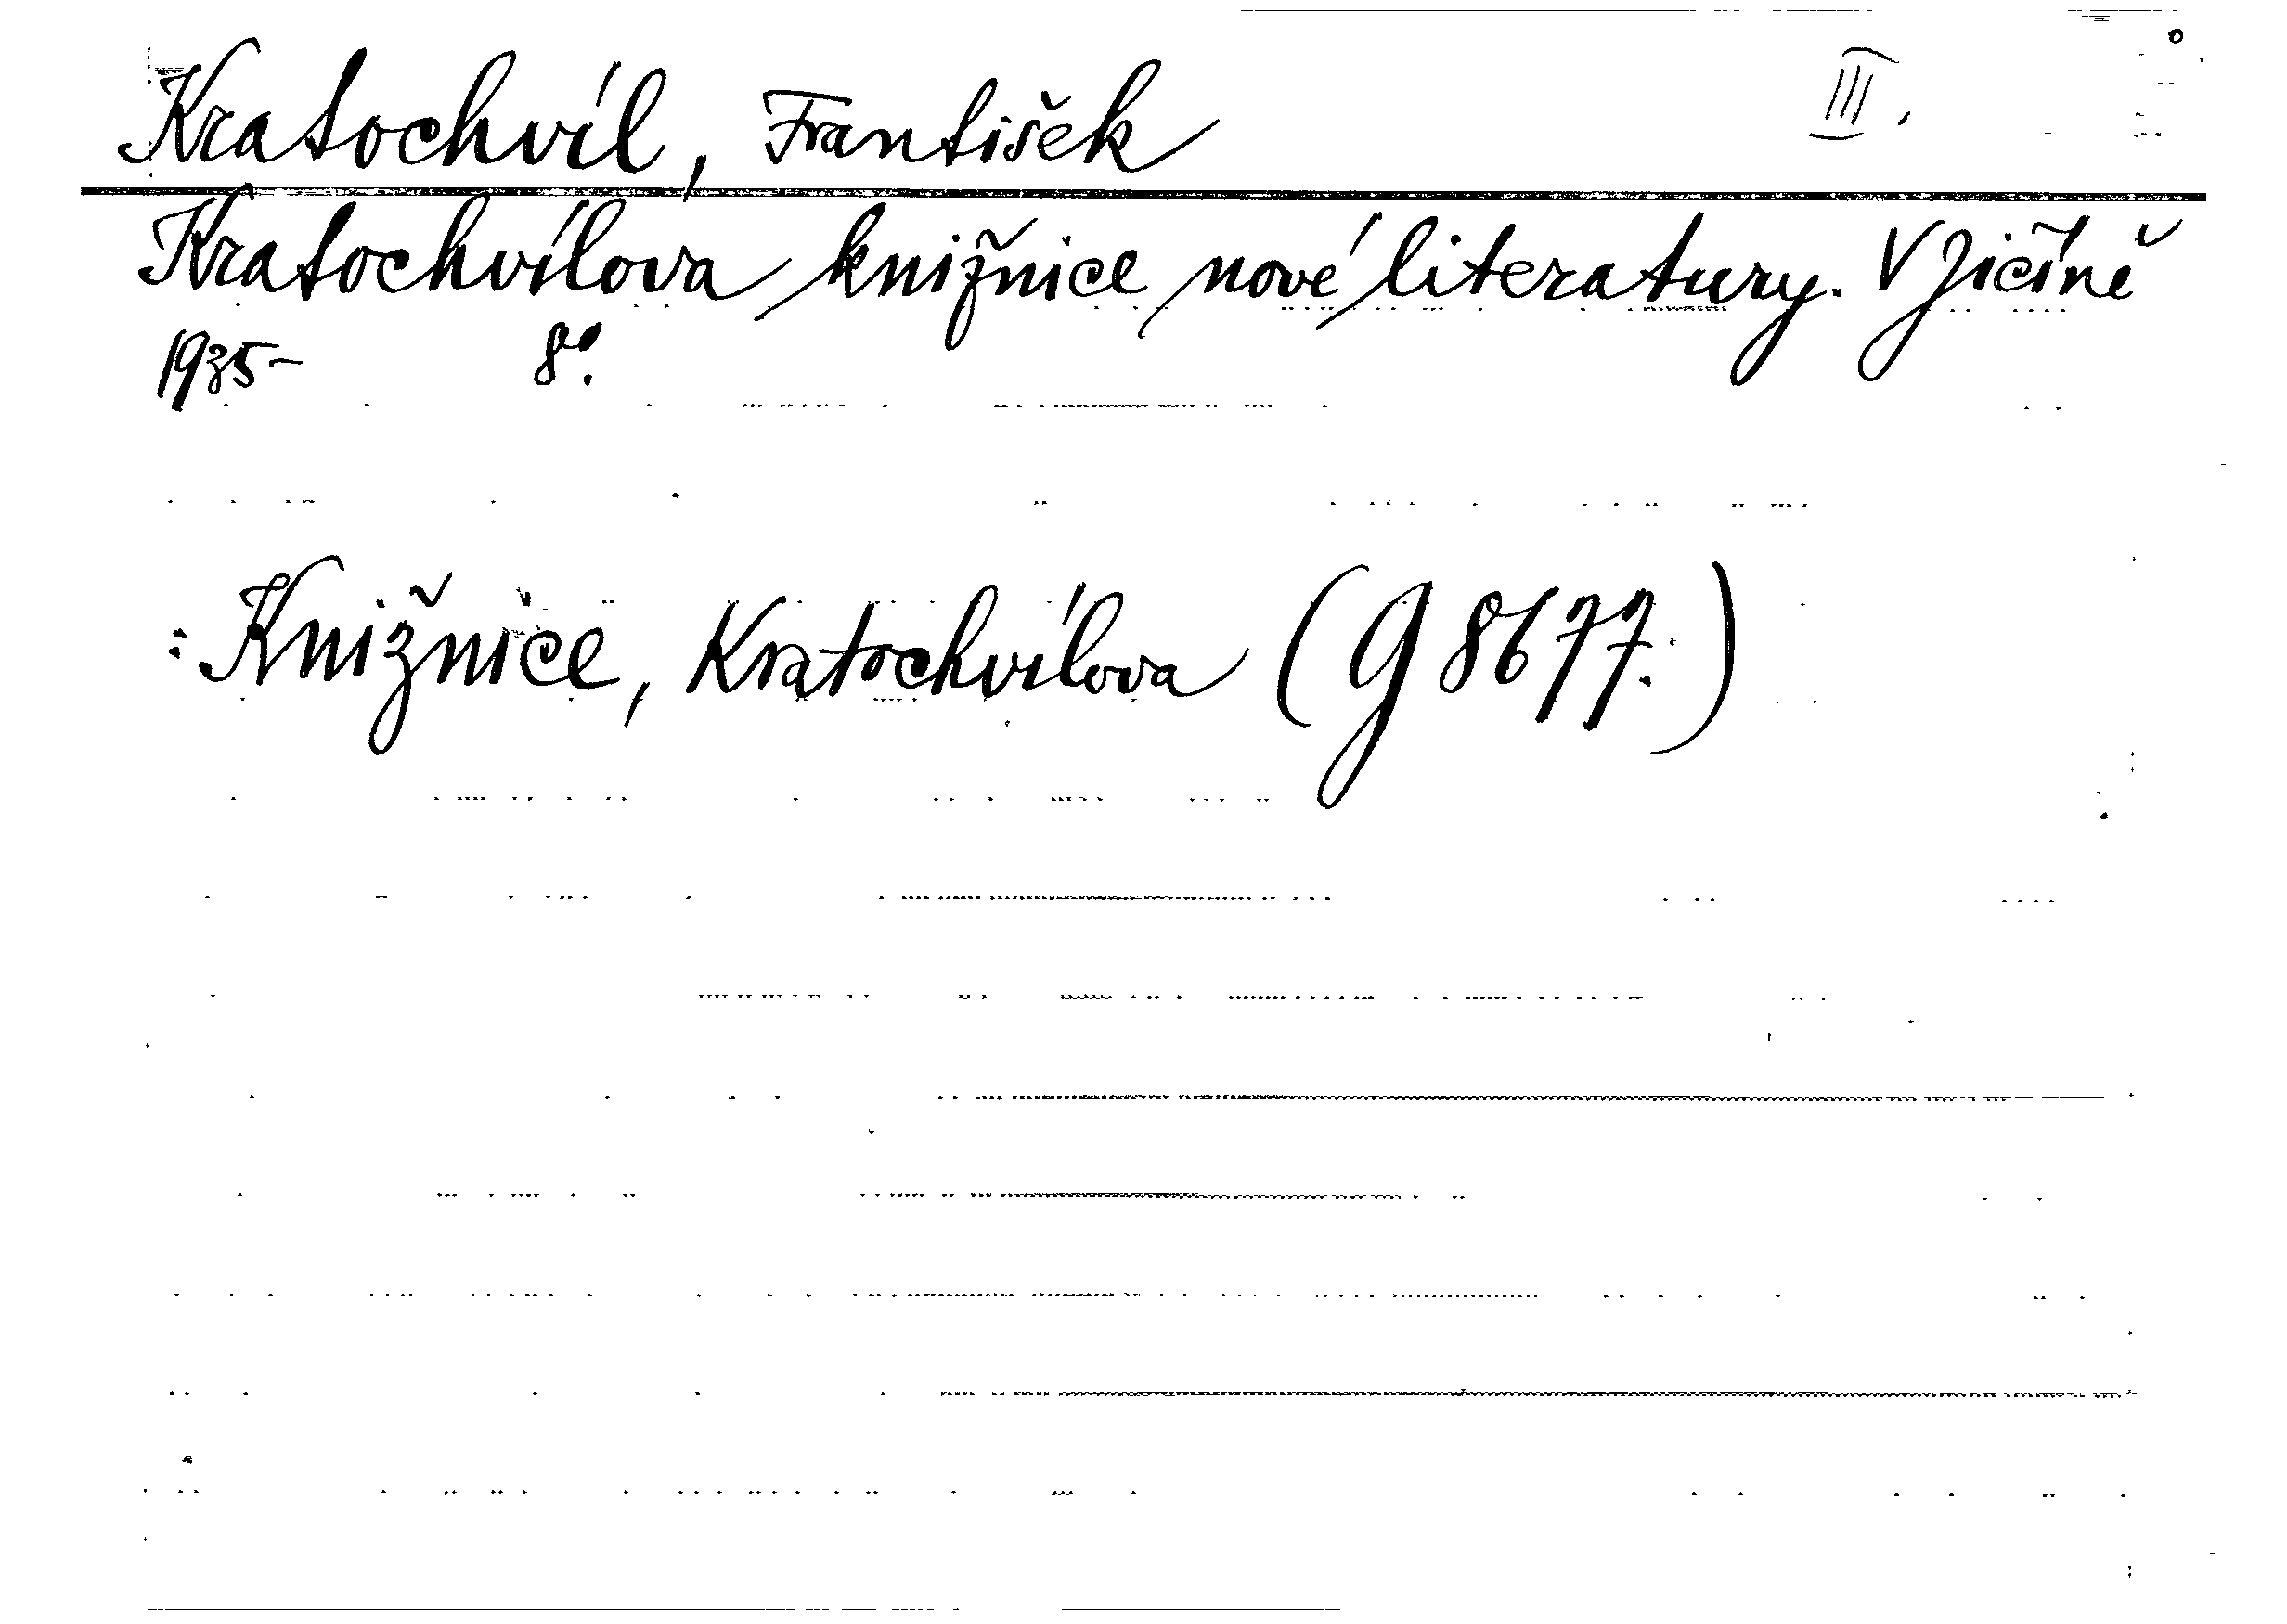 Kratochvíl, František III.
Kratochvílova knižnice nové literatury. V Jičíně
1935- 8°.
: Knižnice, Kratochvílova (G 8677.)